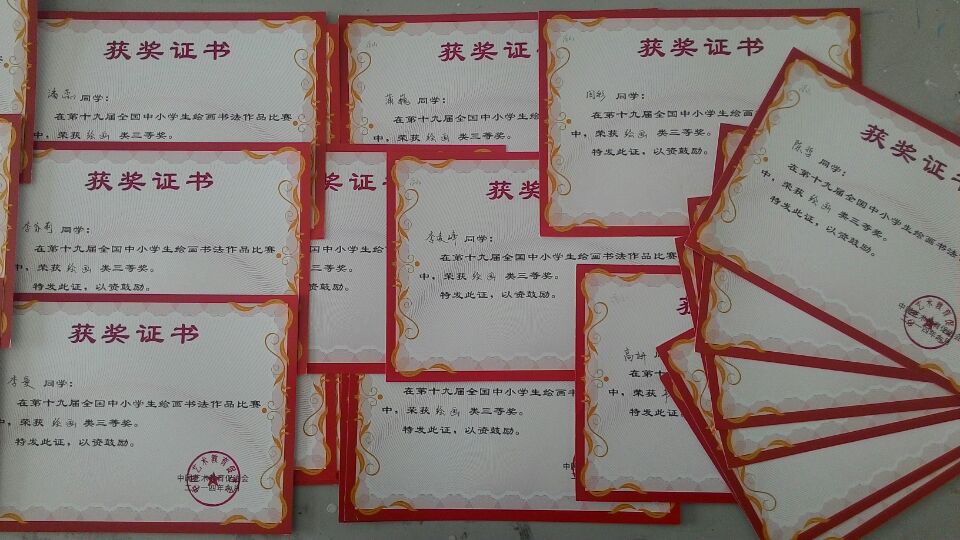 获奖证书
同学：
在第十九届全国中小学生绘画书法作品比赛
中，荣获 绘画 类三等奖。
获奖证
同学：
在第十九届全国中小学生绘画书法
中，荣获 绘画 类三等奖。
获奖证书
周彬 同学：
在第十九届全国中小学生绘画
中，荣获 绘画 类三等奖。
特发此证，以资鼓励。
获奖证书
陈雪 同学：
在第十九届全国中小学生绘画书法
中，荣获 绘画 类三等奖。
特发此证，以资鼓励。
获奖证书
同学：
在第十九届全国中小学生绘画书法作品比赛
中，荣获 绘画 类三等奖。
特发此证，以资鼓励。
奖证
国中小学生绘
类三等奖。
证，以资鼓励。
获奖
李友峰 同学：
在第十九届全国中小学生绘画书法作品比赛
中，荣获 绘画 类三等奖。
特发此证，以资鼓励。
获奖证书
李曼 同学：
在第十九届全国中小学生绘画书法作品比赛
中，荣获 绘画 类三等奖。
特发此证，以资鼓励。
中国艺术教育促进会
二〇一四年
在第十九届全国中小学生绘画书法作品比
中，荣获 绘画 类三等奖。
特发此证，以资鼓励。
高妍
在第十
中，荣获
特发此